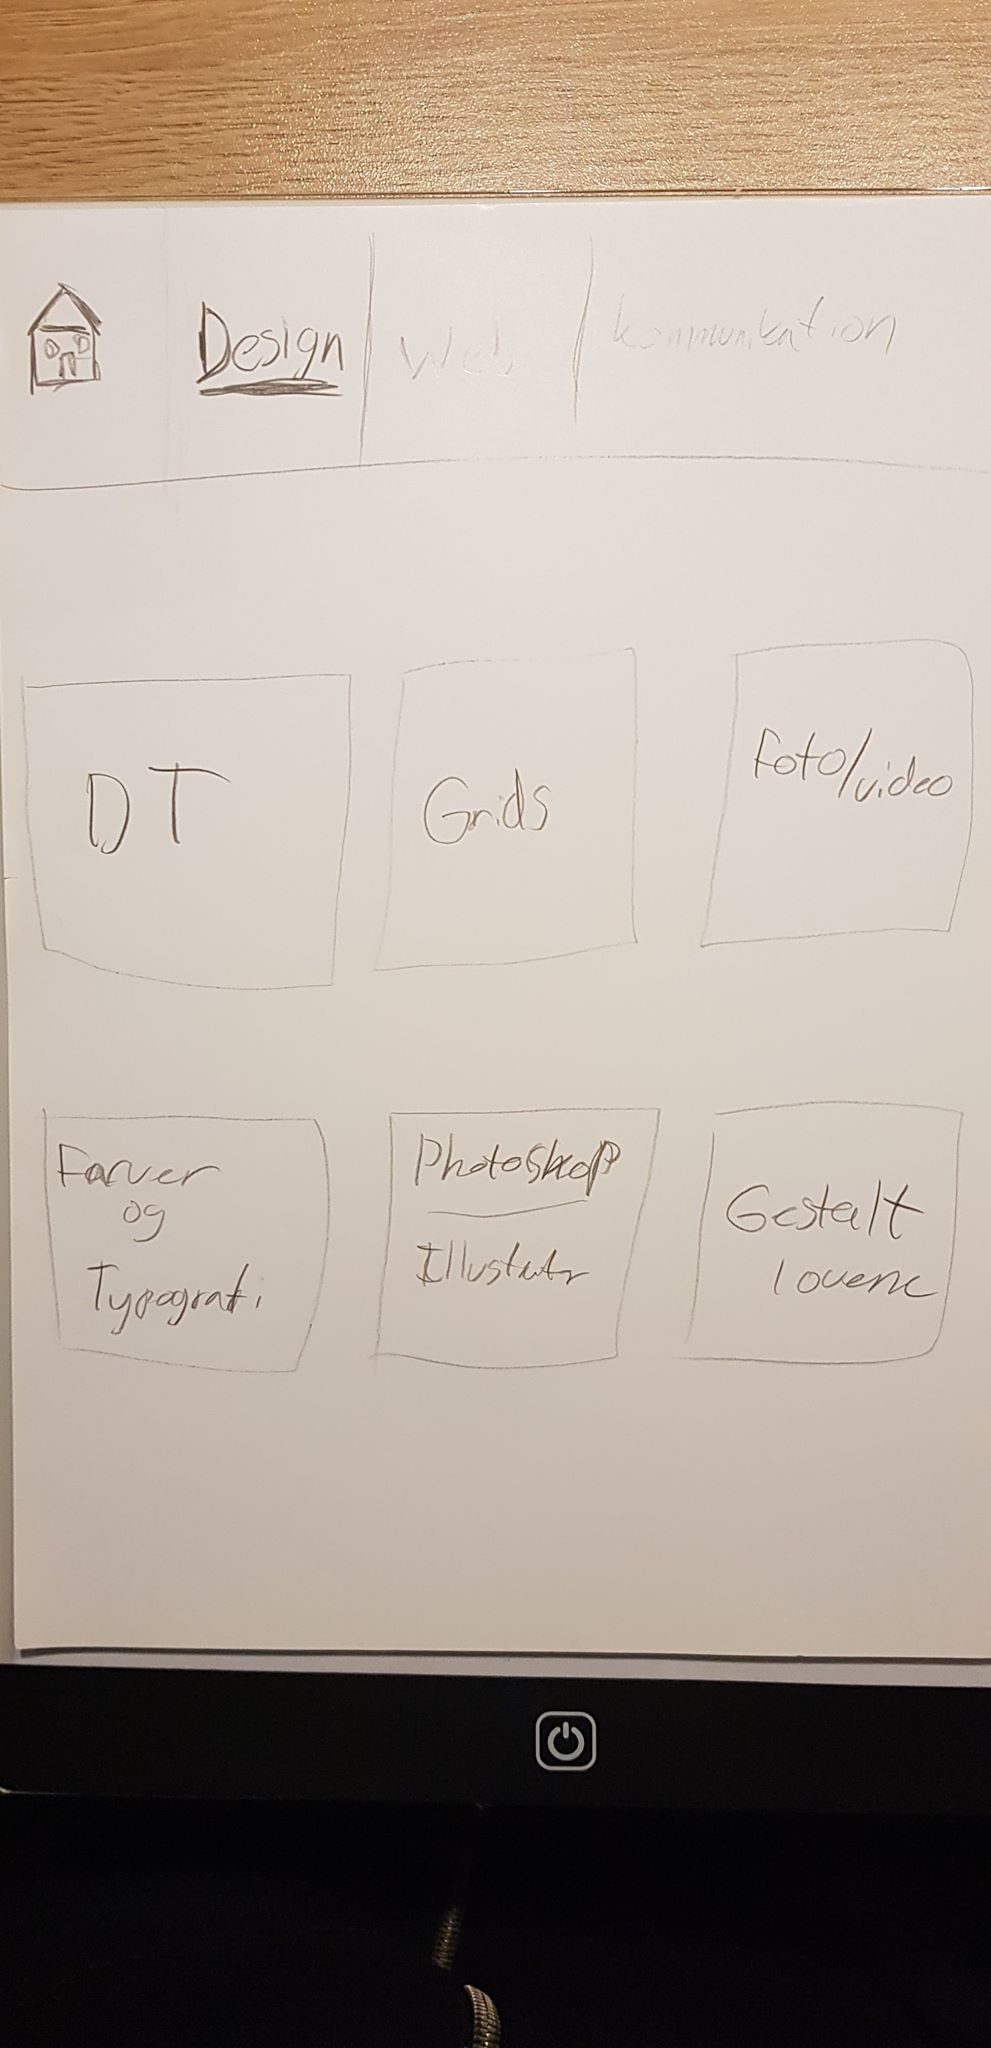 Design
Web
kommunikation
DT
Grids
Foto/video
Farver
og
Typografi
Photoshop
Illustrator
Gestalt
lovene